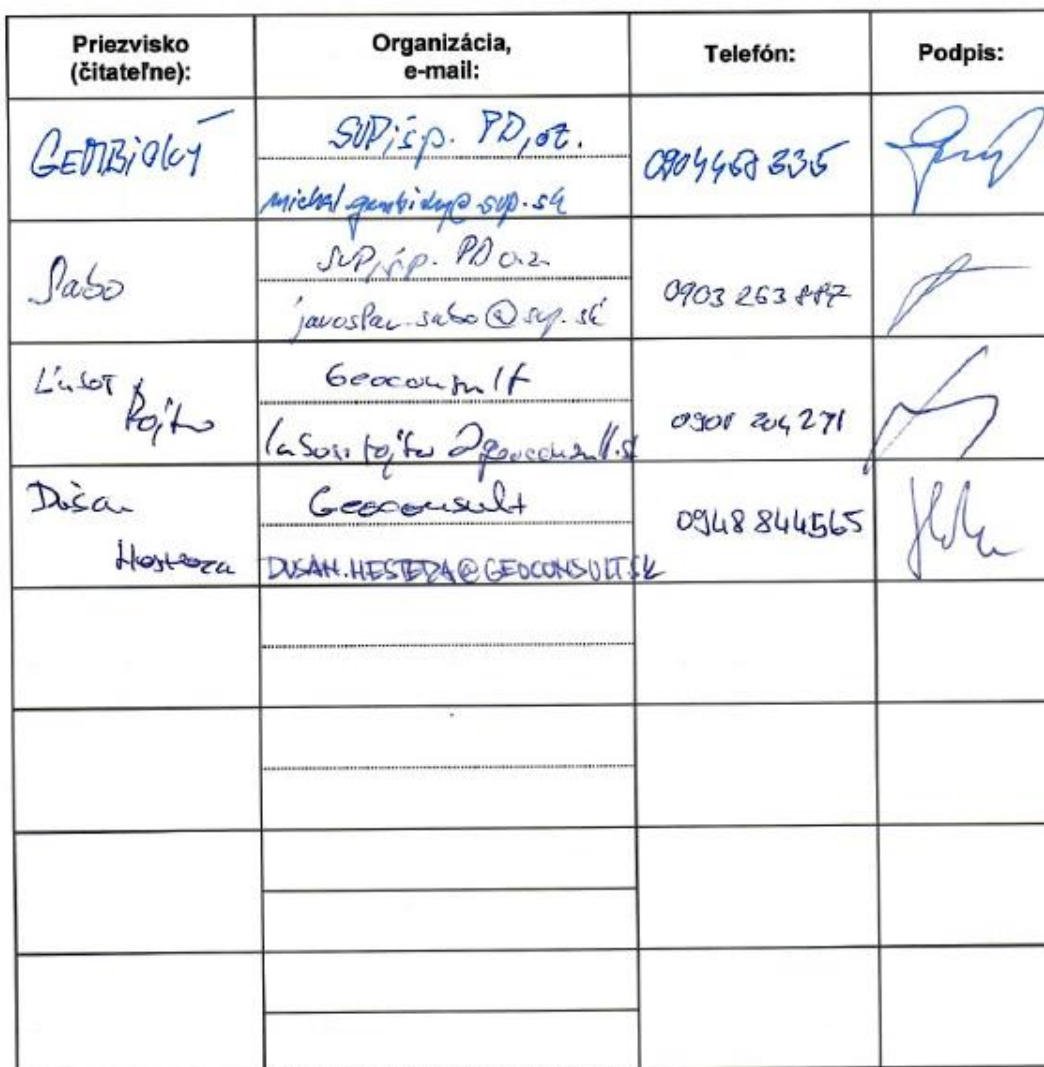 Priezvisko
(čitateľne):
Organizácia,
e-mail:
Telefón:
Podpis:
GEMBICKÝ
SVP, š.p. PD, oz.
michal.gembicky@svp.sk
0904468335
Sabo
SVP, š.p. PD o.z.
jaroslav.sabo@svp.sk
0903 263 887
Ľuboš
Geoconsult
204 271
Dušan
Hostera
Geoconsult
DUSAN.HESTERA@GEOCONSULT.SK
0948 844565